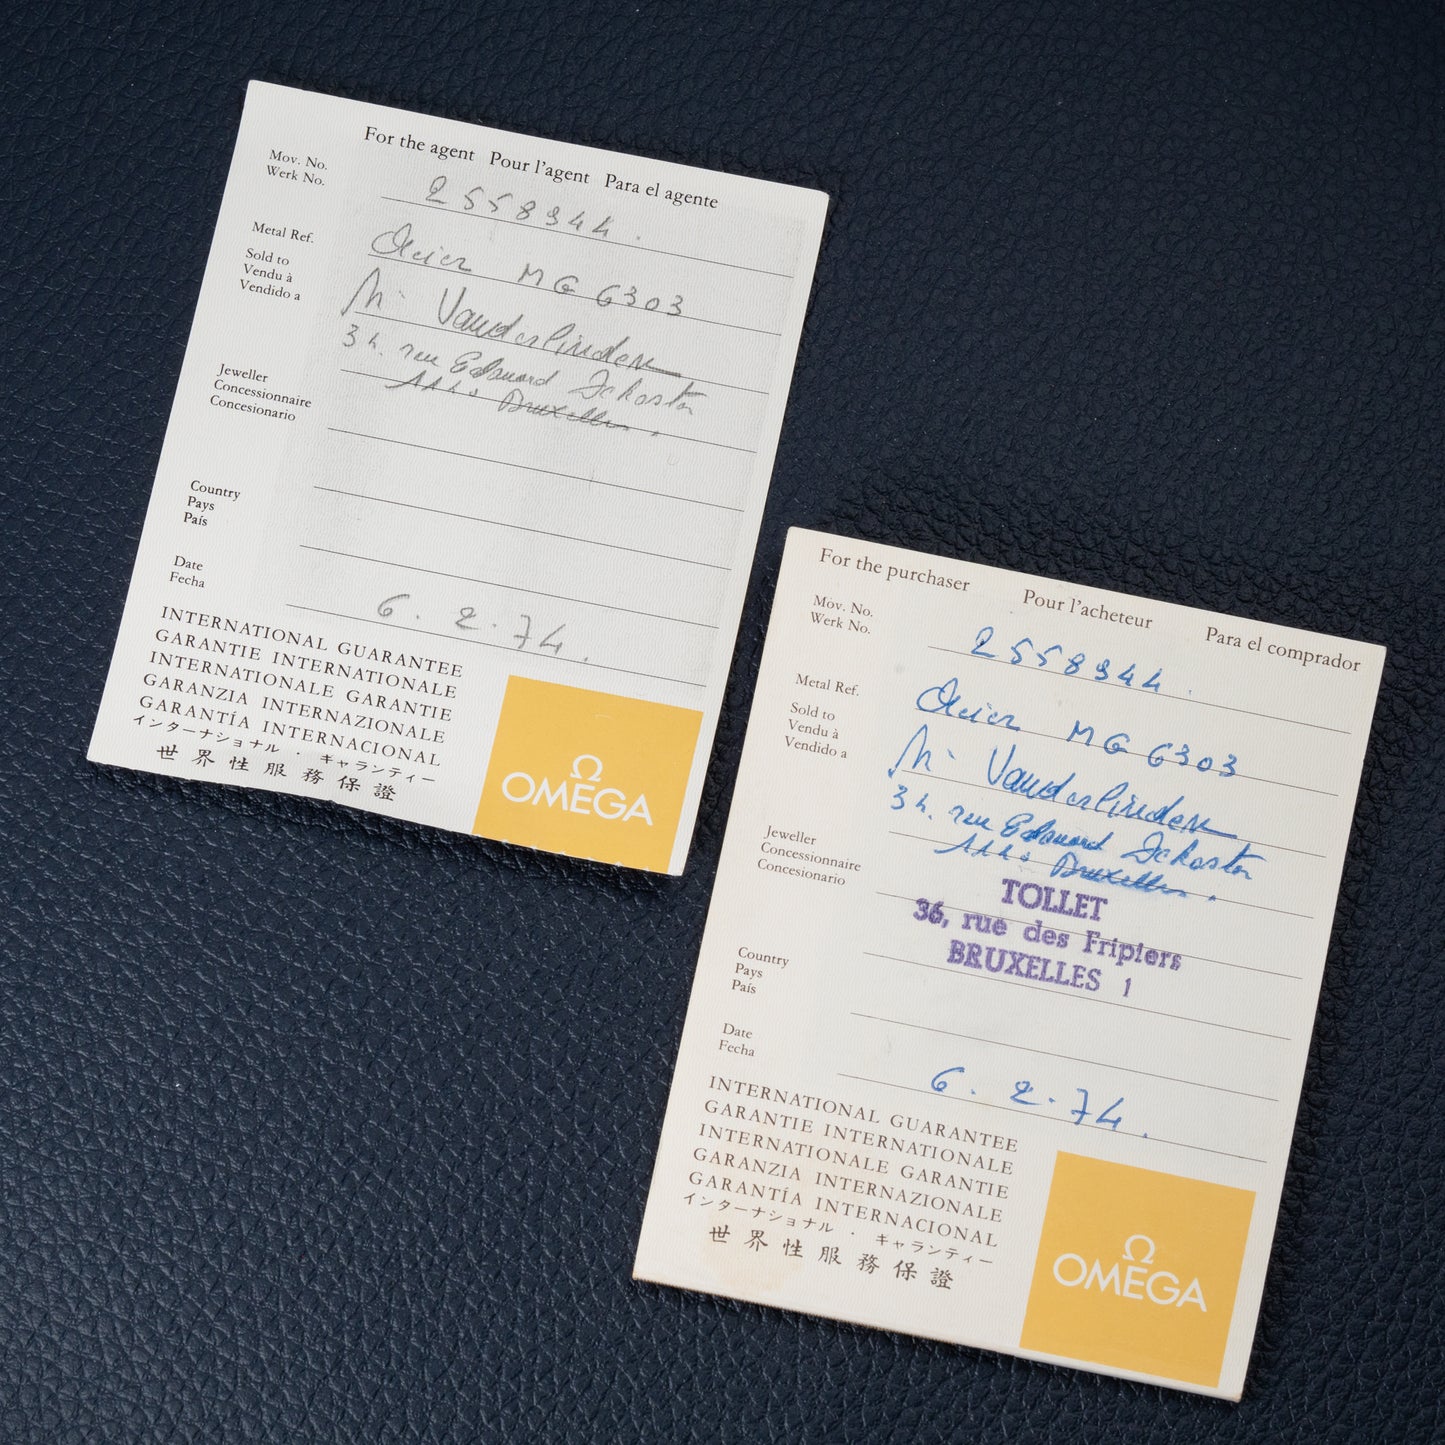 For the agent Pour l'agent Para el agente
Mov. No.
Werk No.
2558944.
Metal Ref.
Acier MG 6303
Sold to
Vendu à
Vendido a
M. Vanderlinden
34. rue Edouard
Bruxelles.
Jeweller
Concessionnaire
Concesionario
Country
Pays
País
Date
Fecha
6.2.74.
INTERNATIONAL GUARANTEE
GARANTIE INTERNATIONALE
INTERNATIONALE GARANTIE
GARANZIA INTERNAZIONALE
GARANTÍA INTERNACIONAL
インターナショナル・ギャランティー
世界性服務保證
Ω
OMEGA
For the purchaser Pour l'acheteur Para el comprador
Mov. No.
Werk No.
2558944.
Metal Ref.
Acier MG 6303
Sold to
Vendu à
Vendido a
M. Vanderlinden
34. rue Edouard
Bruxelles.
Jeweller
Concessionnaire
Concesionario
TOLLET
36, rue des Fripiers
BRUXELLES 1
Country
Pays
País
Date
Fecha
6.2.74.
INTERNATIONAL GUARANTEE
GARANTIE INTERNATIONALE
INTERNATIONALE GARANTIE
GARANZIA INTERNAZIONALE
GARANTÍA INTERNACIONAL
インターナショナル・ギャランティー
世界性服務保證
Ω
OMEGA